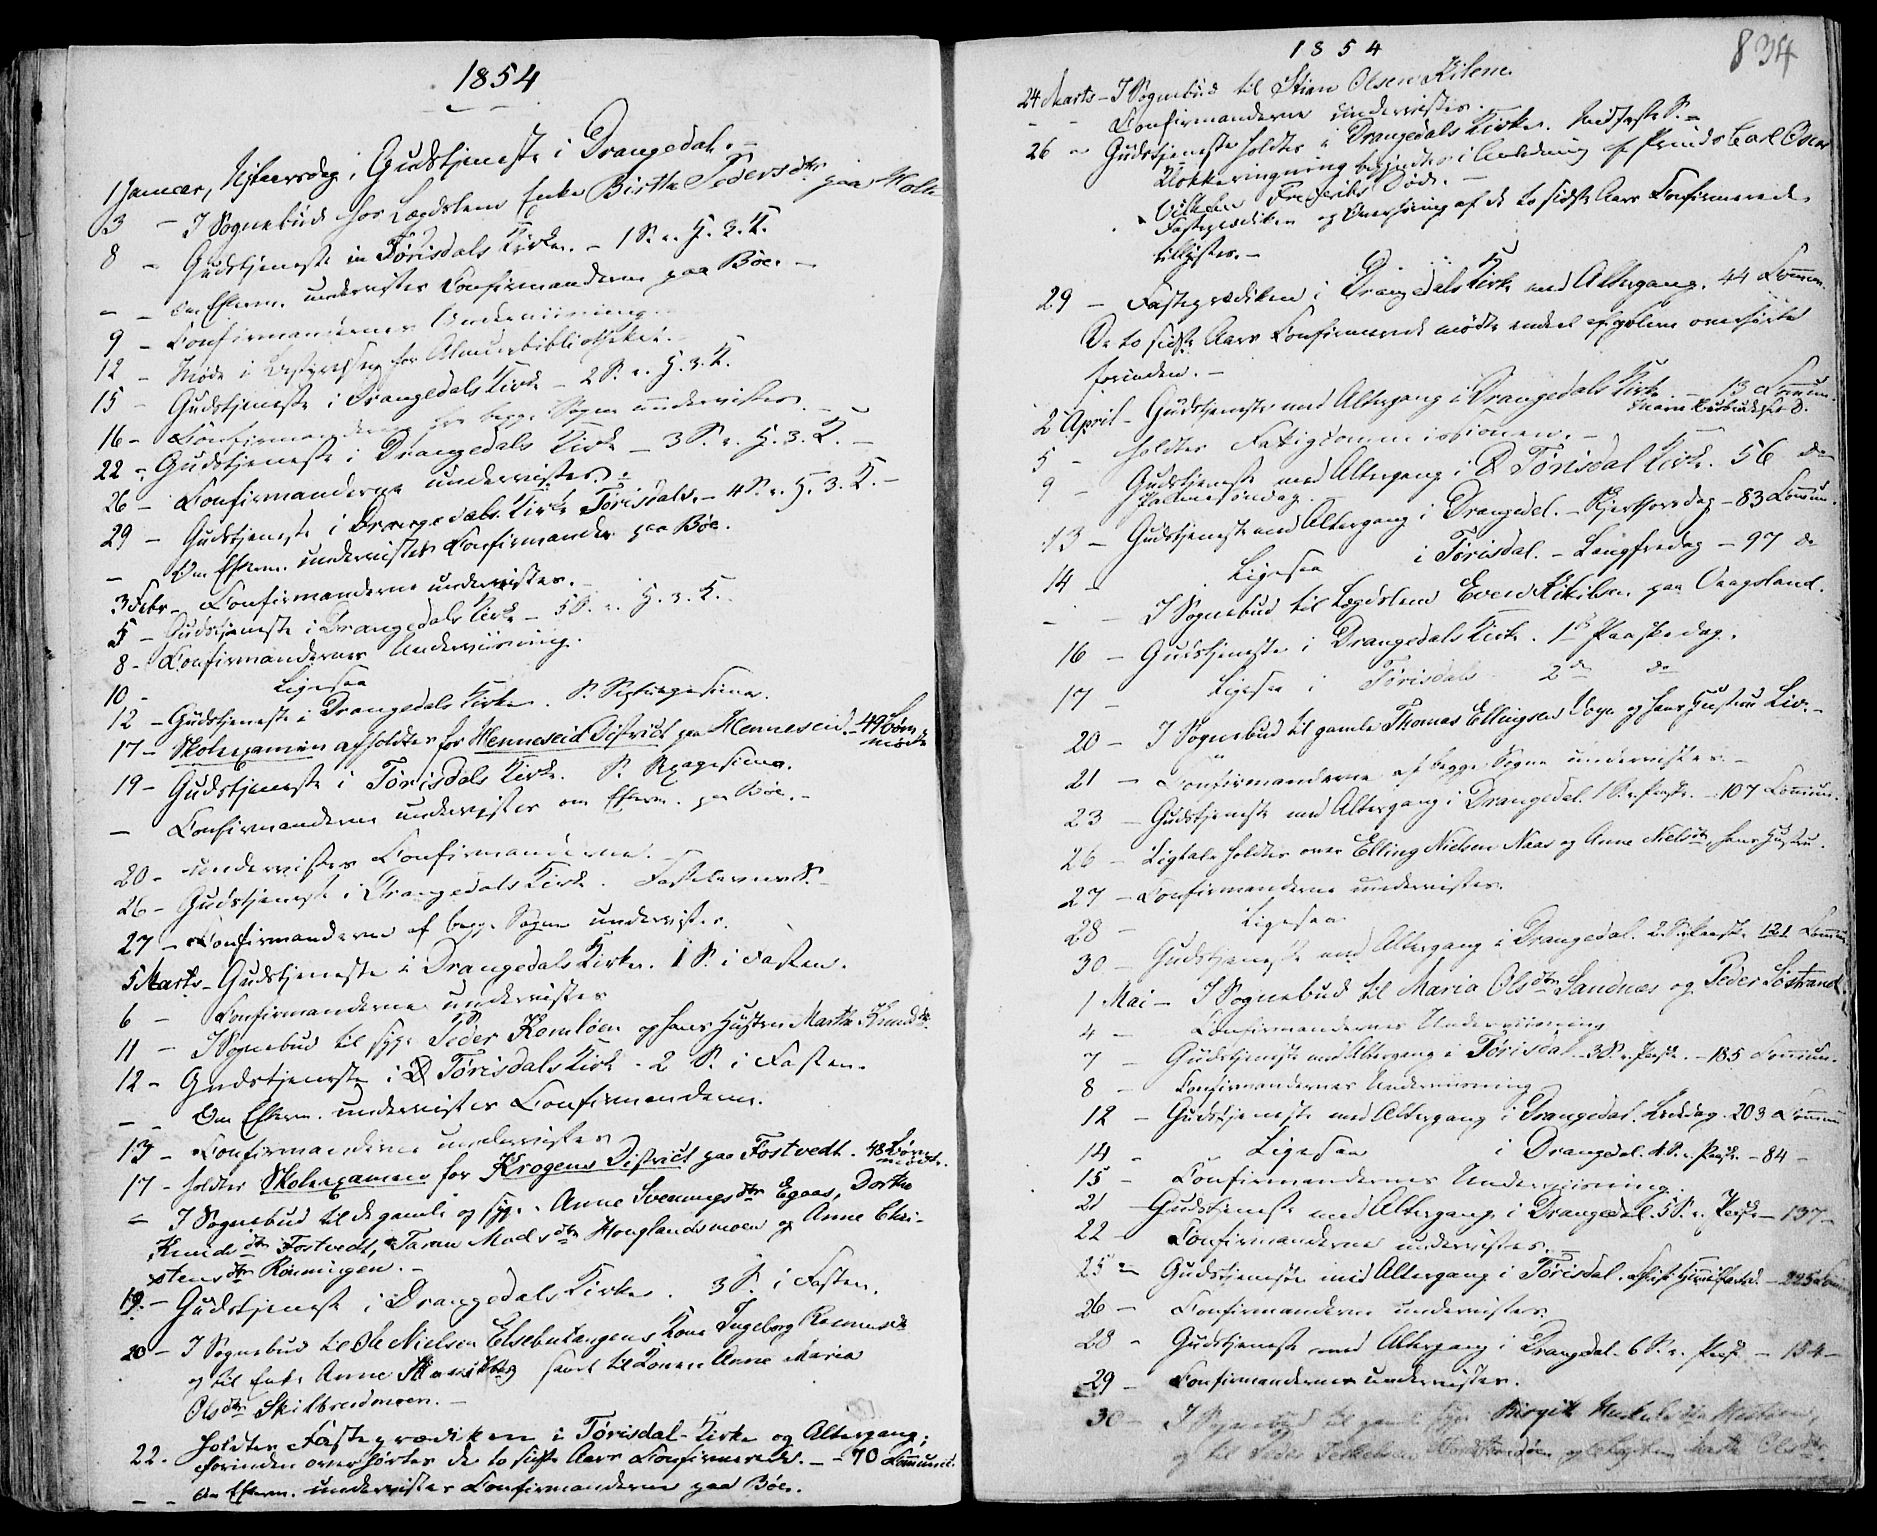 1854
1 Januar, Nytaarsdag, Gudstjeneste i Drangedal. -
3 - I Sognebud hos Lægdslem Enke Birthe Pedersdtr paa Holte
8 - Gudstjeneste in Tørisdals Kirke. - 1 S. e. H. 3. K.
- - Om Efterm. undervistes Confirmanderne paa Bøe. -
9 - Confirmandernes Underviisning.
12 - Møde i Bestyrelsen for Almuebibliotheket. -
15 - Gudstjeneste i Drangedals Kirke - 2 S. e. H. 3. K.
16 - Confirmanderne fra begge Sogne undervistes. -
22 - Gudstjeneste i Drangedals Kirke - 3 S. e. H. 3. K. -
26 - Confirmanderne undervistes. -
29 - Gudstjeneste i Drangedals Kirke Tørisdals. - 4 S. e. H. 3. K. -
- Om Efterm. undervistes Confirmander paa Bøe.
3 Febr - Confirmanderne undervistes. -
5 - Gudstjeneste i Drangedals Kirke - 5 S. e. H. 3. K.
8 - Confirmandernes Underviisning.
10 - Ligesaa
12 - Gudstjeneste i Drangedals Kirke. S. Septuagesima.
17 - Skoleexamen afholdtes for Henneseid District paa Henneseid. - 49 Børn mødte
19 - Gudstjeneste i Tørisdals Kirke. S. Sexagesima.
- Confirmanderne undervistes om Efterm. paa Bøe. -
20 - undervistes Confirmanderne. -
26 - Gudstjeneste i Drangedals Kirke. Fastelavns S. -
27 - Confirmanderne af begge Sogne undervistes.
5 Marts - Gudstjeneste i Drangedals Kirke. 1 S. i Fasten.
6 - Confirmanderne undervistes
11 - I Sognebud til syge Peder Komløen og hans Hustru Marthe Knudsdtr.
12 - Gudstjeneste i D Tørisdals Kirke - 2 S. i Fasten.
- - Om Efterm. undervistes Confirmanderne.
13 - Confirmanderne undervistes
17 - holdtes Skoleexamen for Krogens District paa Tostvedt. 48 Børn mødte.
- I Sognebud til de gamle og syge. Anne Svenningsdtr Egaas, Dorthe
Knudsdtr Tostvedt, Taran Madsdtr Houglandsmoen og Anne Chri-
stensdtr Rønningen. -
19 - Gudstjeneste i Drangedals Kirke. 3 S. i Fasten.
20 - I Sognebud til Ole Nielsen Elsebutangens Kone Ingeborg Rasmusdtr
og til Enke Anne samt til Konen Anne Maria
Olsdtr Skilbredmoen. -
22 - holdtes Fasteprædiken i Tørisdal-Kirke og Altergang;
forinden overhørtes de to sidste Aars Confirmerede. - - 70 Commun.
- - Om Efterm. undervistes Confirmanderne paa Bøe.
834
1854
24 Marts - I Sognebud til Stian Olsen Kilene.
- - Confirmanderne undervistes.
26 - Gudstjeneste holdtes i Drangedals Kirke. Midfaste S. -
Klokkeringning begyndtes i Anledning af Prinds Carl Oscar
Vilhelm Frederiks Død. -
Fasteprædiken og Overhøring af de to sidste Aars Confirmerede
tillystes. -
29 - Fasteprædiken i Drangedals Kirke med Altergang. 44 Commun.
De to sidste Aars Confirmerede mødte endeel af hvilke overhørte
forinden. -
2 April - Gudstjeneste med Altergang i Drangedals Kirke. - 13 Commun.
Mariæ Bebudelses D.
5 - holdtes Fattigcommissionen. -
9 - Gudstjeneste med Altergang i D Tørisdal Kirke. 56 do
Palmesøndag.
13 - Gudstjeneste med Altergang i Drangedal. - Skjertorsdag - 83 Commun.
14 - Ligesaa i Tørisdal. - Langfredag - 97 do
- - I Sognebud til Lægdslem Even Kittilsen paa Vaagsland.
16 - Gudstjeneste i Drangedals Kirke. 1ste Paaskedag.
17 - Ligesaa i Tørisdals 2den do
20 - I Sognebud til gamle Thomas Ellingsen og hans Hustru Liv. -
21 - Confirmanderne af begge Sogne undervistes. -
23 - Gudstjeneste med Altergang i Drangedal. 1 S. e. Paaske. - 107 Commun.
26 - Ligtale holdtes over Elling Nielsen Naas og Anne Nielsdtr hans Hustru.
27 - Confirmanderne undervistes.
28 - Ligesaa
30 - Gudstjeneste med Altergang i Drangedal. 2 S. e. Paaske 121 Commun
1 Mai - I Sognebud til Maria Olsdtr Sandnæs og Peder Søstrand.
4 - Confirmandernes Underviisning
7 - Gudstjeneste med Altergang i Tørisdal - 3 S. e. Paaske. - 185 Commun.
8 - Confirmandernes Underviisning
12 - Gudstjeneste med Altergang i Drangedal. Bededag. 203 Commun
14 - Ligesaa i Drangedal. 4 S. e. Paaske - 84 -
15 - Confirmandernes Underviisning.
21 - Gudstjeneste med Altergang i Drangedal. 5 S. e. Paaske - 137 -
22 - Confirmanderne undervistes. -
25 - Gudstjeneste med Altergang i Tørisdal. Christi Himmelfartsd. - 225 Comm
26 - Confirmanderne undervistes.
28 - Gudstjeneste med Altergang i Drangedal. 6 S. e. Paaske - 184 -
29 - Confirmanderne undervistes.
30 - I Sognebud til gamle syge Birgit
og til Peder og Marthe Olsdtr.